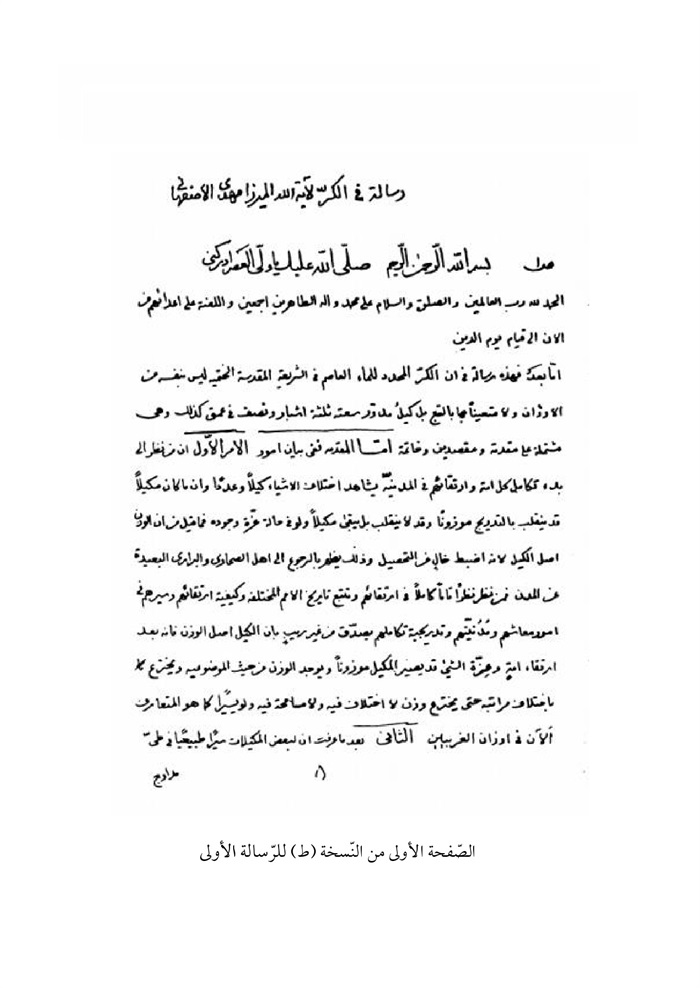 رسالة في الكرّ لآية الله الميرزا مهدي الأصفهاني
بسم الله الرّحمن الرّحيم صلّى الله عليك يا وليّ العصر ادركني
الحمد لله رب العالمين والصلوة والسلام على محمد وآله الطاهرين اجمعين واللعنة على اعدائهم من
الان الى قيام يوم الدين
امّا بعد فهذه رسالة في ان الكرّ المحدد للماء العاصم في الشريعة المقدسة الحقيه ليس بنفسه من
الاوزان ولا متعيناً بها بالتبع بل كيلُ مدوّر سعته ثلثة اشبار ونصف في عمق كذلك وهى
مشتملة على مقدمة ومقصدين وخاتمة امّا المقدمه ففى بيان امور الامر الأوّل ان من نظر الى
بدء تكامل كل امة وارتقائهم في المدنيّة يشاهد اختلاف الاشياء كيلاً وعددًا وان ما كان مكيلاً
قد ينقلب بالتدريج موزونًا وقد لا ينقلب بل يبقى مكيلاً ولو في حالة عزّة وجوده فما قيل من ان الوزن
اصل الكيل لانه اضبط خالي عن التحصيل وذلك يظهر بالرجوع الى اهل الصحارى والبرارى البعيدة
عن المدن فمن نظر نظرًا تامًا كاملاً في ارتقائهم وتتبع تاريخ الامم المختلفه وكيفية ارتقائهم وسيرهم في
امور معاشهم وتمدّنيّتهم وتدريجية تكاملهم يصدّق من غير ريب بان الكيل اصل الوزن فانه بعد
ارتقاء امةٍ وعزّة الشئ قد يصير المكيل موزوناً ويوجد الوزن من حيث الموضوعيه ويخترع
باختلاف مراتبه حتى يخترع وزن لا اختلاف فيه ولا مسامحة فيه ولو يسيرًا كما هو المتعارف
الآن في اوزان الغربيين الثانى بعد ما عرفت ان لبعض المكيلات سيرًا طبيعيًا في طىّ
مدارج
(١
الصّفحة الأولى من النّسخة (ط) للرّسالة الأولى